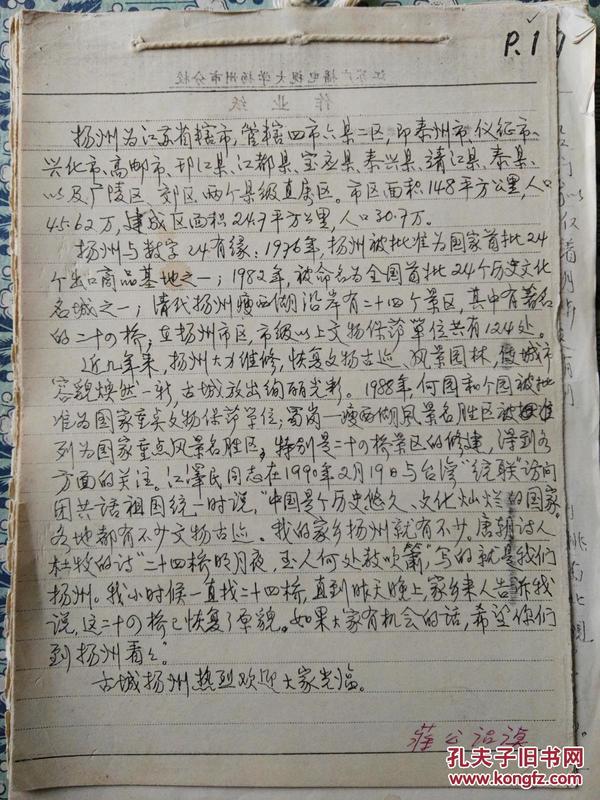 P.1
江苏广播电视大学扬州市分校
作业纸
扬州为江苏省辖市,管辖四市六县二区,即泰州市、仪征市、
兴化市、高邮市、邗江县、江都县、宝应县、泰兴县、靖江县、泰县、
以及广陵区、郊区、两个县级直属区。市区面积148平方公里,人口
45.62万,建成区面积24.7平方公里,人口30.7万。
扬州与数字24有缘:1976年,扬州被批准为国家首批24
个出口商品基地之一;1982年,被命名为全国首批24个历史文化
名城之一;清代扬州瘦西湖沿岸有二十四个景区,其中有著名
的二十四桥,在扬州市区,市级以上文物保护单位共有124处。
近几年来,扬州大力维修,恢复文物古迹、风景园林,使城市
容貌焕然一新,古城放出绚丽光彩。1988年,何园和个园被批
准为国家重点文物保护单位,蜀岗—瘦西湖风景名胜区被
列为国家重点风景名胜区;特别是二十四桥景区的修建,得到各
方面的关注。江泽民同志在1990年2月19日与台湾“统联”访问
团共话祖国统一时说,“中国是个历史悠久、文化灿烂的国家。
各地都有不少文物古迹。我的家乡扬州就有不少。唐朝诗人
杜牧的诗“二十四桥明月夜,玉人何处教吹箫”写的就是我们
扬州。我小时候一直找二十四桥,直到昨天晚上,家乡来人告诉我
说,这二十四桥已恢复了原貌。如果大家有机会的话,希望你们
到扬州看看。”
古城扬州热烈欢迎大家光临。
孔夫子旧书网
www.kongfz.com